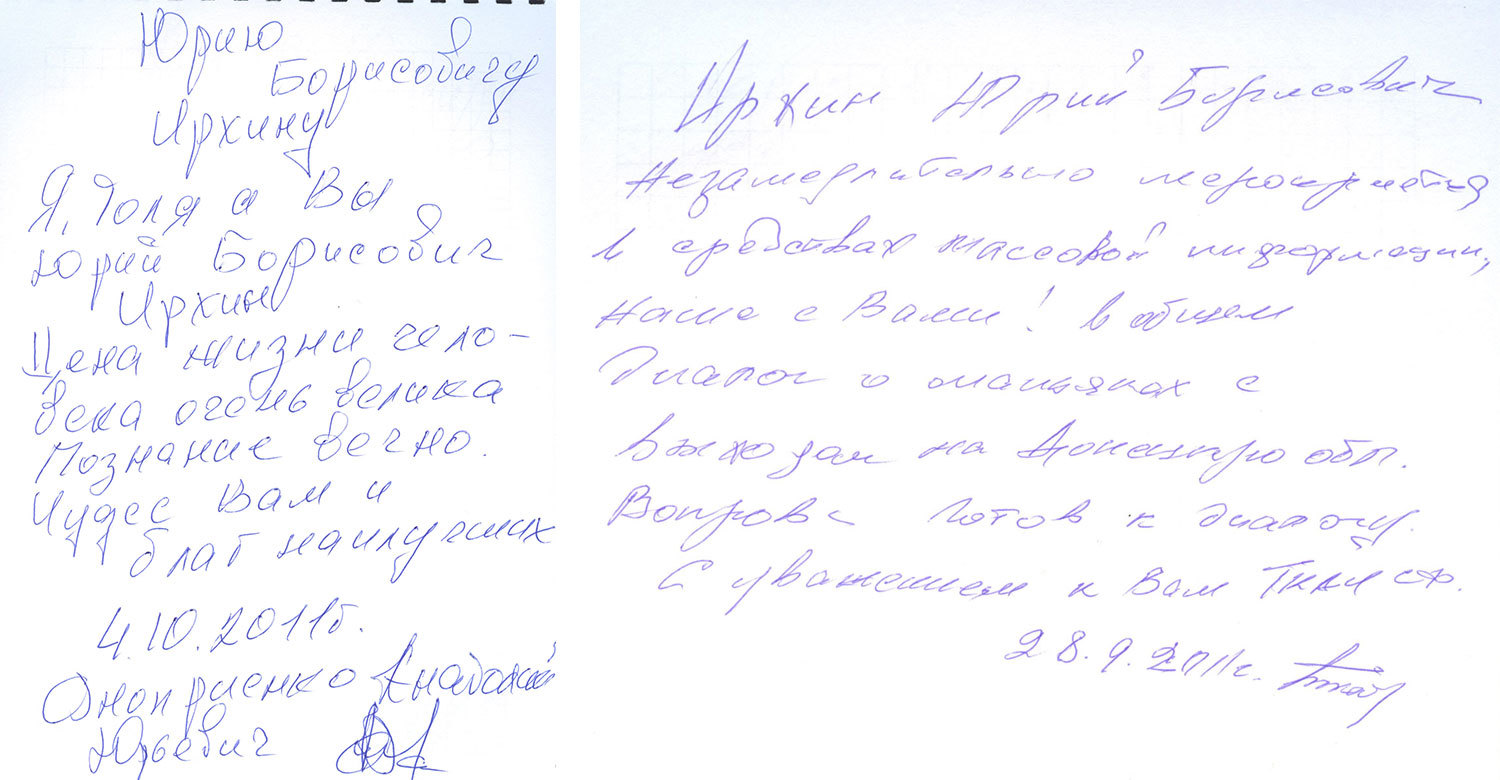 Юрию
Борисовичу
Ирхину
Я, Толя а Вы
Юрий Борисович
Ирхин
Цена жизни чело-
века очень велика
Познание вечно.
Чудес Вам и
благ наилучших
4.10.2011г.
Оноприенко Анатолий
Юрьевич
Ирхин Юрий Борисович
Незамедлительно мероприятия
в средствах массовой информации,
наше с Вами! в общем
Диалог о маньяках с
выходом на
Готов к диалогу.
С уважением к Вам Ткач
28.9.2011г.